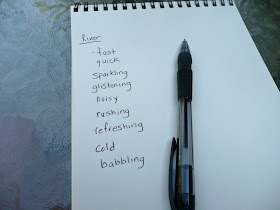 River
-fast
quick
sparkling
glistening
noisy
rushing
refreshing
cold
babbling